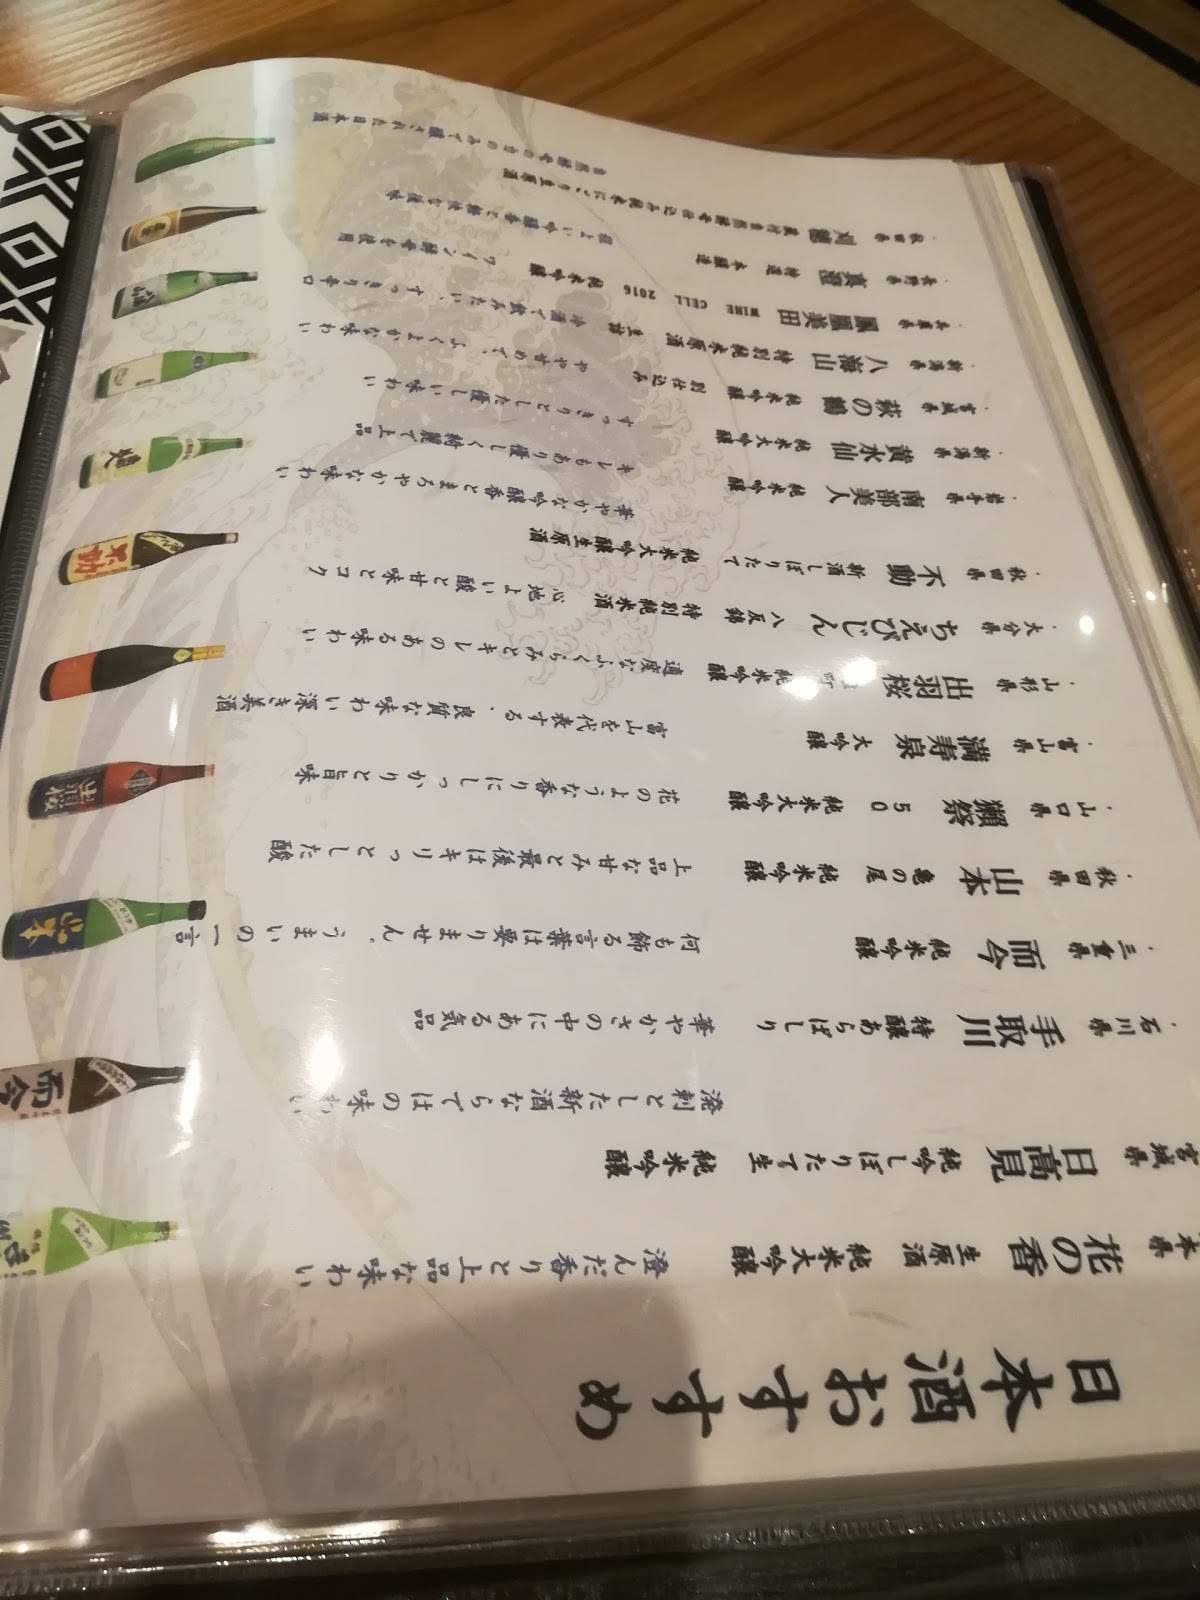 日本酒おすすめ
本県 花の香 生原酒 純米大吟醸
澄んだ香りと上品な味わい
宮城県 日高見 純吟しぼりたて生 純米吟醸
溌剌とした新酒ならではの味わい
・石川県 手取川 特醸あらばしり
華やかさの中にある気品
・三重県 而今 純米吟醸
何も飾る言葉は要りません。うまいの一言
・秋田県 山本 亀の尾 純米吟醸
上品な甘みと最後はキリっとした酸
・山口県 獺祭 50 純米大吟醸
花のような香りにしっかりと旨味
・富山県 満寿泉 大吟醸
富山を代表する・良質な味わい深き美酒
・山形県 出羽桜 町 純米吟醸
適度なふくらみとキレのある味わい
・大分県 ちえびじん 八反錦 特別純米酒
心地よい酸と甘味とコク
・秋田県 不動 新酒しぼりたて 純米大吟醸生原酒
華やかな吟醸香とまろやかな味わい
・岩手県 南部美人 純米吟醸
キレもあり優しく綺麗で上品
・新潟県 黄水仙 純米大吟醸
すっきりとした優しい味わい
・宮城県 萩の鶴 純米吟醸 別仕込み
やや甘めで、ふくよかな味わい
・新潟県 八海山 特別純米原酒 生詰
冷酒で飲みたい、すっきり辛口
・兵庫県 鳳凰美田 WINE CELL 2016 純米吟醸
ワイン酵母を使用
・長野県 真澄 特選 本醸造
程よい吟醸香と軽快な後味
・秋田県 刈穂 蔵付自然酵母仕込み純米にごり生原酒
自然酵母の力のみで醸された日本酒
而今
山本
出羽桜
不動
八海山